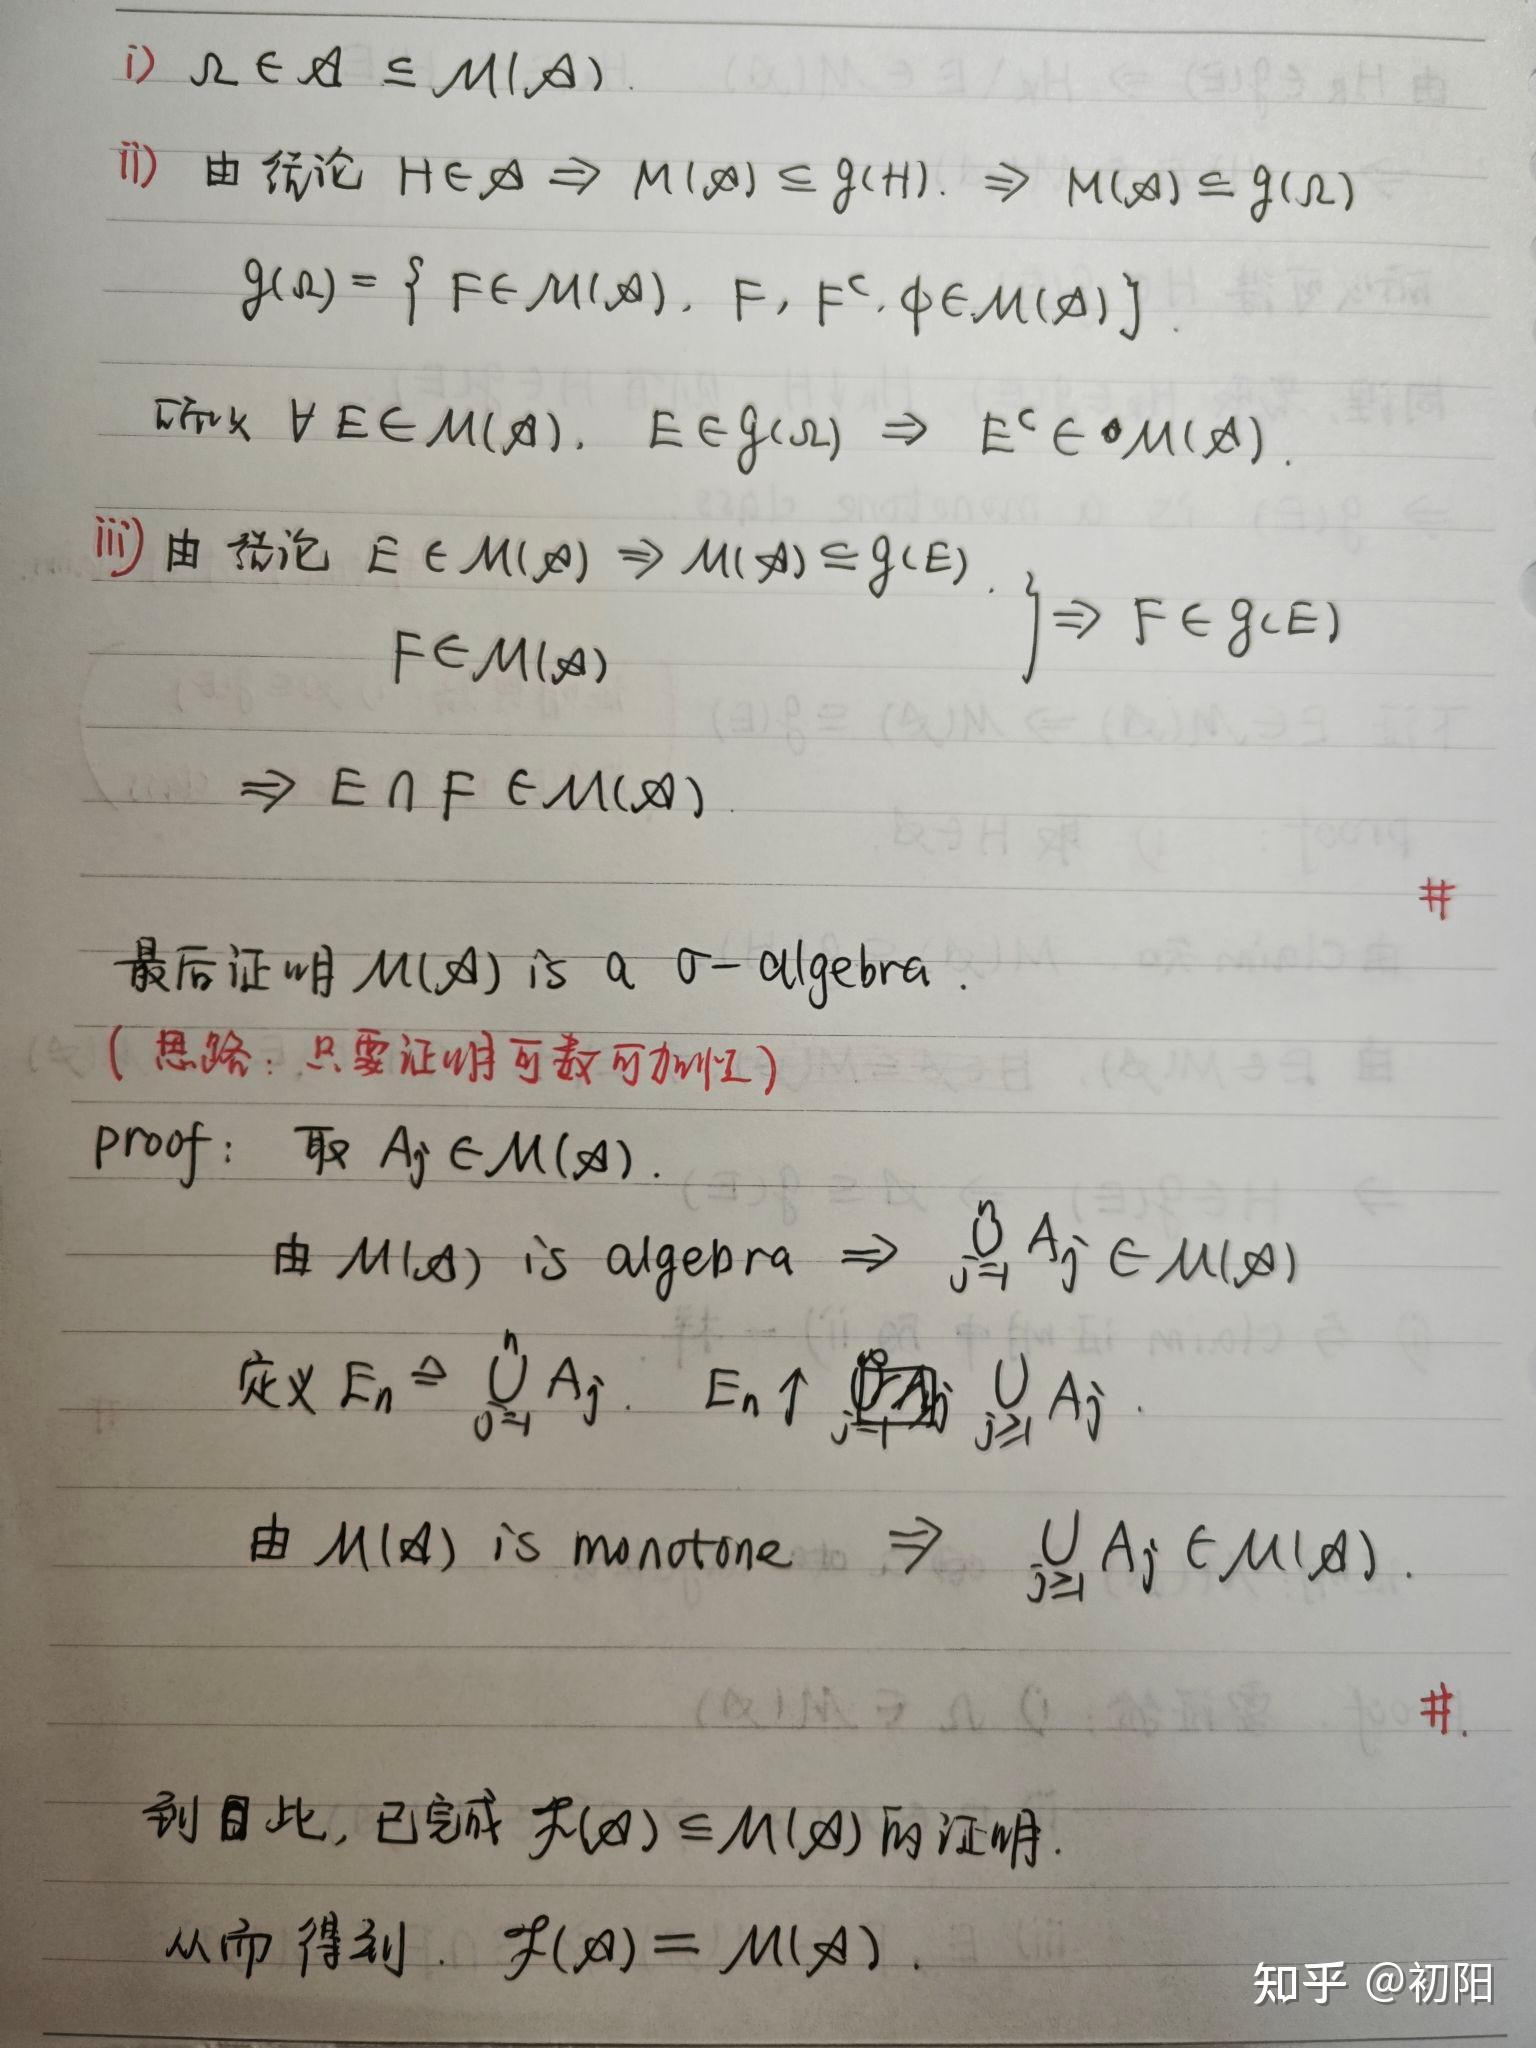 i) Ω ∈ 𝒜 ⊆ M(𝒜).
ii) 由结论 H∈𝒜 ⇒ M(𝒜) ⊆ g(H). ⇒ M(𝒜) ⊆ g(Ω)
g(Ω) = { F∈M(𝒜). F, F^c, φ∈M(𝒜) }.
所以 ∀ E∈M(𝒜). E∈g(Ω) ⇒ E^c ∈ M(𝒜).
iii) 由结论 E ∈ M(𝒜) ⇒ M(𝒜) ⊆ g(E).
F∈M(𝒜)
} ⇒ F ∈ g(E)
⇒ E ∩ F ∈ M(𝒜).
#
最后证明 M(𝒜) is a σ-algebra.
(思路: 只要证明可数可加性)
proof: 取 Aj ∈ M(𝒜).
由 M(𝒜) is algebra ⇒ ⋃_{j=1}^{n} Aj ∈ M(𝒜)
定义 En ≙ ⋃_{j=1}^{n} Aj. En ↑ ⋃_{j≥1} Aj.
由 M(𝒜) is monotone ⇒ ⋃_{j≥1} Aj ∈ M(𝒜).
#.
到此, 已完成 ℱ(𝒜) ⊆ M(𝒜) 的证明.
从而得到. ℱ(𝒜) = M(𝒜).
知乎 @初阳